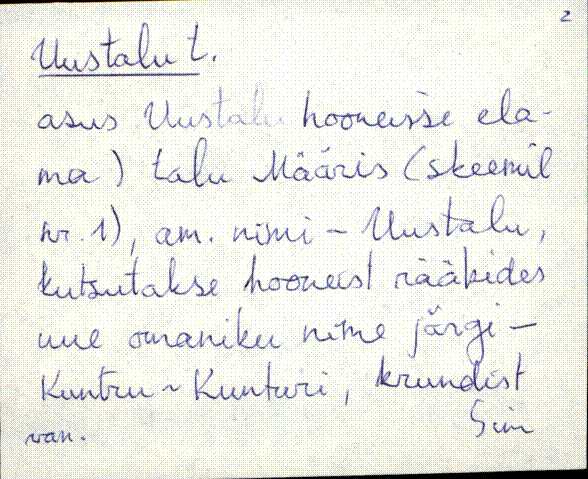 2
Uustalu t.
asus Uustalu hooneisse ela-
ma) talu Määris (skeemil
nr. 1), am. nimi - Uustalu,
kutsutakse hooneist rääkides
uue omaniku nime järgi -
Kuntru ~ Kunturi, krundist
van.